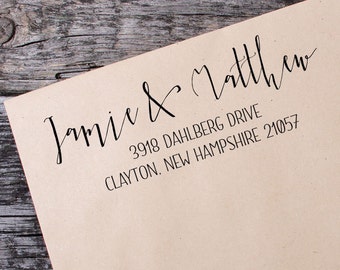 Jamie & Matthew
3918 DAHLBERG DRIVE
CLAYTON, NEW HAMPSHIRE 21057